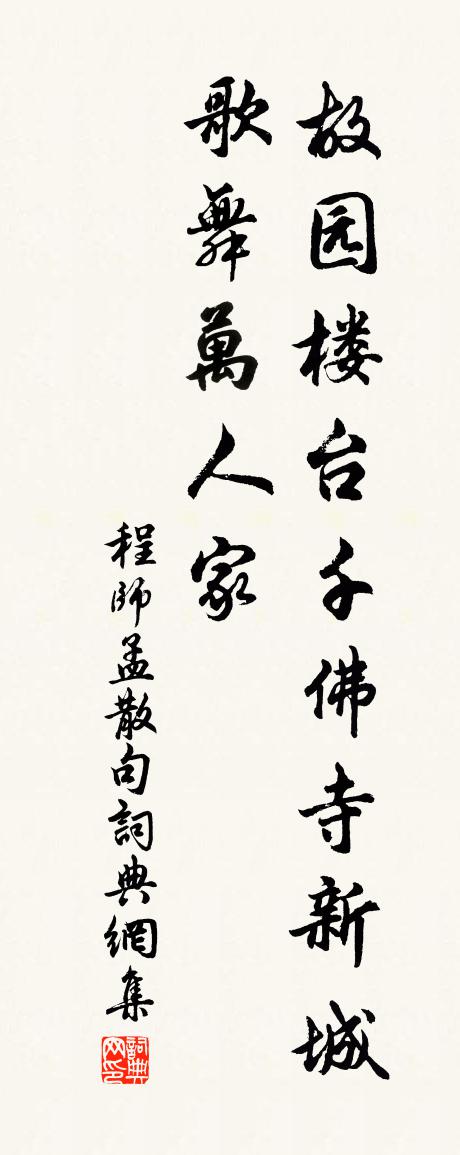 故园楼台千佛寺新城
歌舞萬人家
程師孟散句詞典網集
詞典
网印